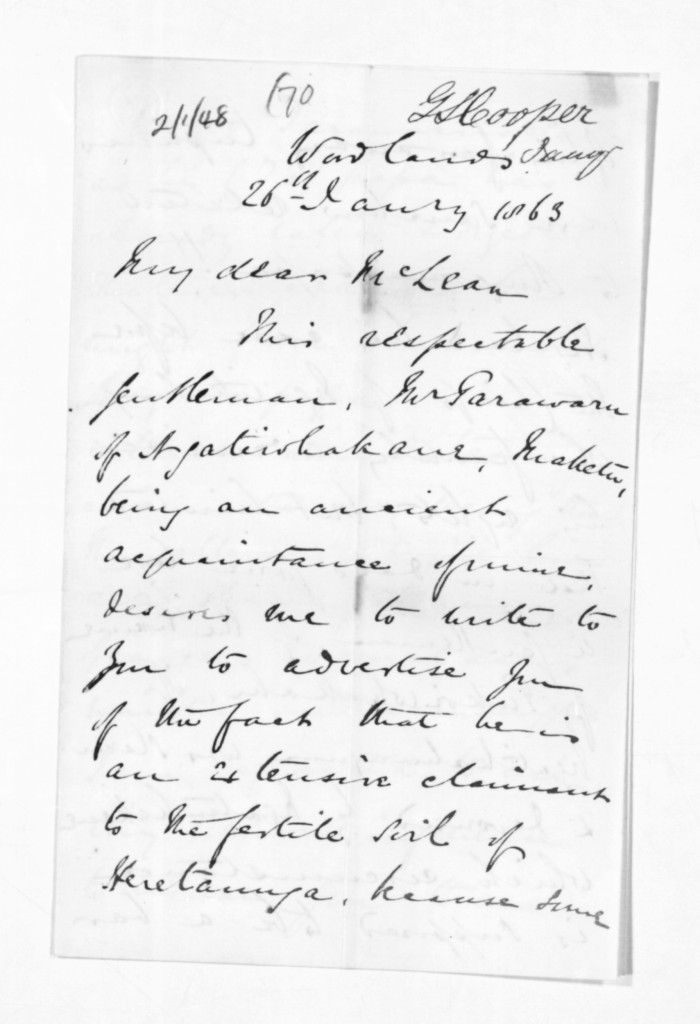 2/1/48
(70
GSCooper
Woodlands
26th Janry 1863
My dear McLean
This respectable
gentleman, Mr Parawaru
of Ngatiwhakaane, Maketu,
being an ancient
acquaintance of mine,
desires me to write to
you to advertise you
of the fact that he is
an extensive claimant
to the fertile soil of
Heretaunga, because some